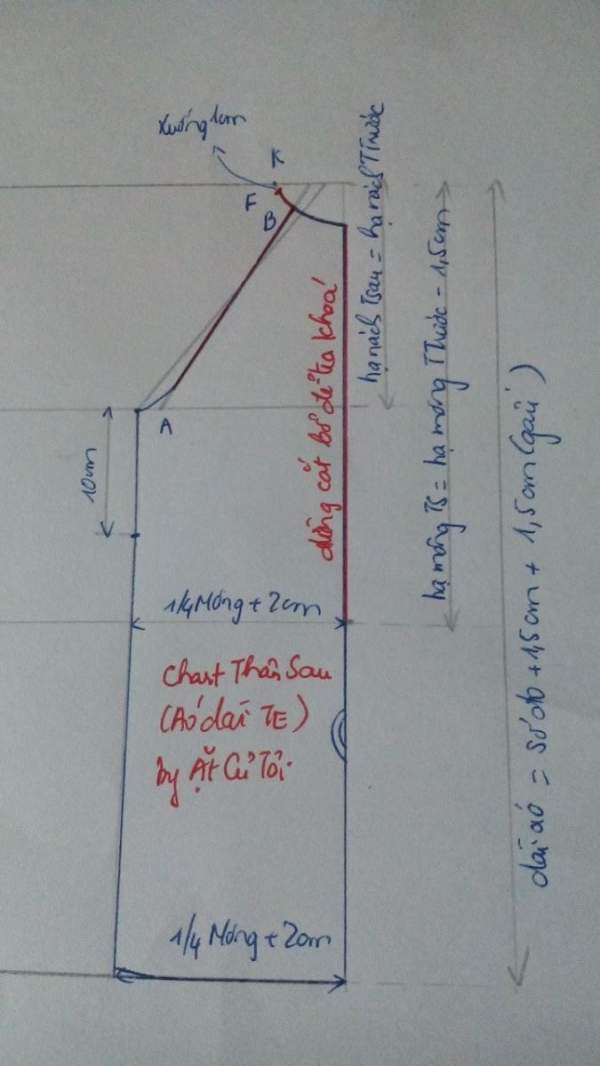 xuống 1cm
F
B
A
10cm
hạ nách Tsau = hạ nách Ttrước
hạ mông TS = hạ mông Ttrước - 1,5cm
dài áo = số đo + 1,5cm + 1,5cm (gấu)
đường cắt bỏ để tra khoá
1/4 Mông + 2cm
Chart Thân Sau
(Áo dài TE)
by Ặt Cử Tồi.
1/4 Mông + 2cm